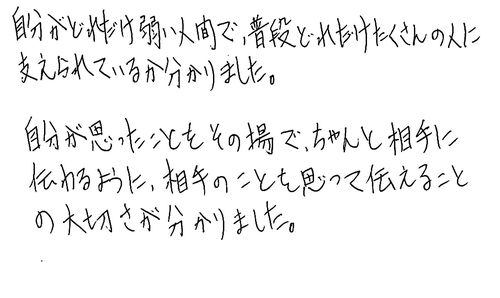 自分がどれだけ弱い人間で、普段どれだけたくさんの人に
支えられているか分かりました。
自分が思ったことをその場で、ちゃんと相手に
伝わるように、相手のことを思って伝えること
の大切さが分かりました。